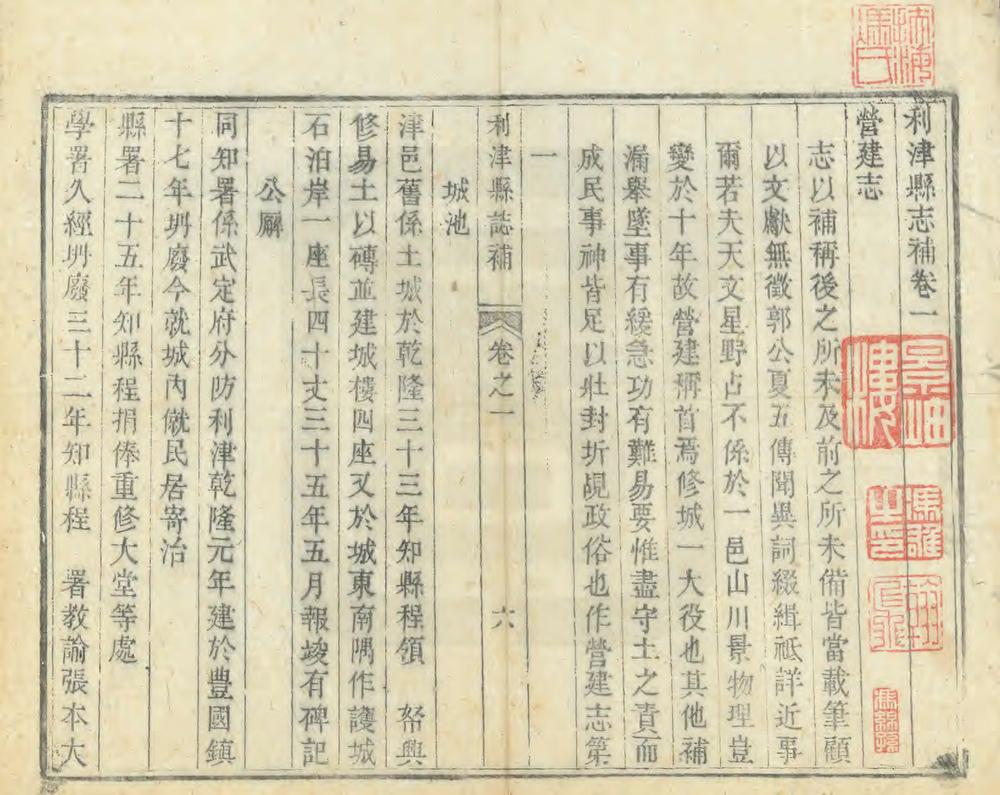 利津縣志補卷一
營建志
志以補稱後之所未及前之所未備皆當載筆顧
以文獻無徵郭公夏五傳聞異詞綴緝祗詳近事
爾若夫天文星野占不係於一邑山川景物理豈
變於十年故營建稱首焉修城一大役也其他補
漏舉墜事有緩急功有難易要惟盡守土之責而
成民事神皆足以壯封圻覘政俗也作營建志第
一
利津縣誌補 卷之一 六
城池
津邑舊係土城於乾隆三十三年知縣程領 帑興
修易土以磚並建城樓四座又於城東南隅作護城
石泊岸一座長四十丈三十五年五月報竣有碑記
公廨
同知署係武定府分防利津乾隆元年建於豐國鎮
十七年坍廢今就城內僦民居寄治
縣署二十五年知縣程捐俸重修大堂等處
學署久經坍廢三十二年知縣程 署教諭張本大